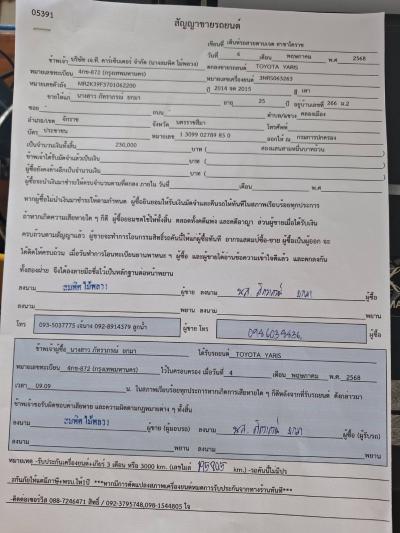 05391
สัญญาขายรถยนต์
เขียนที่ เต็นท์รถสายตามเจต สาขาโคราช
วันที่ 4 เดือน พฤษภาคม พ.ศ 2568
ข้าพเจ้า บริษัท เจ.ที. คาร์เซ็นเตอร์ จำกัด (นางสมพิศ ไม้พลวง) ตกลงขายรถยนต์ TOYOTA YARIS
หมายเลขทะเบียน 4กข-872 (กรุงเทพมหานคร) หมายเลขเครื่องยนต์ 3NRS063263
หมายเลขตัวถัง MR2K39F3701062200 ปี 2014 จด 2015 สี เทา
ขายให้แก่ นางสาว ภัทราภรณ์ ยกมา อายุ 25 ปี อยู่บ้านเลขที่ 266 ม.2
ซอย ถนน ตำบล/แขวง คลองเมือง
อำเภอ/เขต จักราช จังหวัด นครราชสีมา โทรศัพท์
บัตร ประชาชน หมายเลข 1 3099 02789 85 0 ออกให้ ณ กรมการปกครอง
เป็นจำนวนเงินทั้งสิ้น 230,000 บาท ( สองแสนสามหมื่นบาทถ้วน )
ข้าพเจ้าได้รับมัดจำแล้วเป็นเงิน บาท ( )
ผู้ซื้อยังคงค้างอีกเป็นจำนวนเงิน บาท ( )
ผู้ซื้อจะนำเงินมาชำระให้ครบจำนวนตามที่ตกลง ภายใน วันที่ เดือน พ.ศ
หากผู้ซื้อไม่นำเงินมาชำระให้ตามกำหนด ผู้ซื้อยินยอมให้รับเงินมัดจำและคืนรถให้ทันทีในสภาพเรียบร้อยทุกประการ
ถ้าหากเกิดความเสียหายใด ๆ ก็ดี ผู้ซื้อยอมชดใช้ให้ทั้งสิ้น ตลอดทั้งคดีแพ่ง และคดีอาญา ส่วนผู้ขายเมื่อได้รับเงิน
ครบถ้วนตามสัญญาแล้ว ผู้ขายจะทำการโอนกรรมสิทธิ์รถคันนี้ให้แก่ผู้ซื้อทันที อากรแสตมป์ซื้อ-ขาย ผู้ซื้อเป็นผู้ออก จะ
ได้คิดให้ครบถ้วน เมื่อวันทำการโอนทะเบียนยานพาหนะ ๆ ผู้ซื้อ และผู้ขายได้อ่านข้อความเข้าใจดีแล้ว และตกลงกัน
ทั้งสองฝ่าย จึงได้ลงลายมือชื่อไว้เป็นหลักฐานต่อหน้าพยาน
ลงนาม สมพิศ ไม้พลวง ผู้ขาย ลงนาม น.ส. ภัทราภรณ์ ยกมา ผู้ซื้อ
ลงนาม พยาน ลงนาม พยาน
โทร 093-5037775 เจ๊นาง 092-8914379 ลูกน้ำ ผู้ขาย โทร ผู้ซื้อ
ข้าพเจ้าผู้ซื้อ นางสาว ภัทราภรณ์ ยกมา ได้รับรถยนต์ TOYOTA YARIS
หมายเลขทะเบียน 4กข-872 (กรุงเทพมหานคร) ไว้ในครอบครอง เมื่อวันที่ 4 เดือน พฤษภาคม พ.ศ. 2568
เวลา 09.09 น. ในสภาพเรียบร้อยทุกประการหากเกิดการเสียหายใด ๆ ก็ดีหลังจากที่รับรถยนต์ ดังกล่าวมา
ข้าพเจ้าขอรับผิดชอบค่าเสียหาย และความผิดตามกฎหมายต่าง ๆ ทั้งสิ้น
ลงนาม สมพิศ ไม้พลวง ผู้ขาย (ผู้มอบรถ) ลงนาม น.ส. ภัทราภรณ์ ยกมา ผู้ซื้อ (ผู้รับรถ)
ลงนาม พยาน ลงนาม พยาน
หมายเหตุ -รับประกันเครื่องยนต์+เกียร์ 3 เดือน หรือ 3000 km. (เลขไมล์ km.) -รถคันนี้ไม่มีประ
กันภัยให้แต่มีภาษี+พรบ.ให้1ปี ***หากมีการดัดแปลงสภาพเครื่องยนต์หมดการรับประกันจากทางร้านทันที***
-ติดต่อเซอร์วิส 088-7246471 สิทธิ์ / 092-3795748,098-1544805 โจ